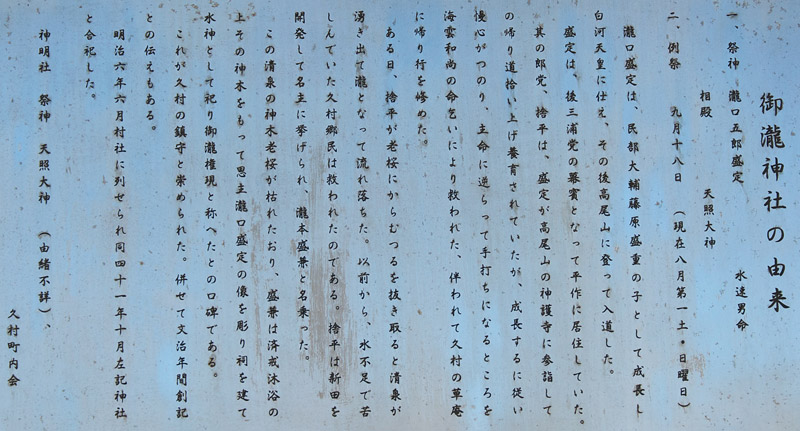 御瀧神社の由来
一、祭神 瀧口五郎盛定 水速男命
相殿 天照大神
二、例祭 九月十八日 (現在八月第一土・日曜日)
瀧口盛定は、民部大輔藤原盛重の子として成長し
白河天皇に仕え、その後高尾山に登って入道した。
盛定は、後三浦党の幕賓となって平作に居住していた。
其の郎党、捨平は、盛定が高尾山の神護寺に参詣して
の帰り道拾い上げ養育されていたが、成長するに従い
慢心がつのり、主命に逆らって手打ちになるところを
海雲和尚の命乞いにより救われた、伴われて久村の草庵
に帰り行を修めた。
ある日、捨平が老桜にからむつるを抜き取ると清泉が
湧き出て瀧となって流れ落ちた。以前から、水不足で苦
しんでいた久村郷民は救われたのである。捨平は新田を
開発して名主に挙げられ、瀧本盛兼と名乗った。
この清泉の神木老桜が枯れたおり、盛兼は済戒沐浴の
上その神木をもって恩主瀧口盛定の像を彫り祠を建て
水神として祀り御瀧権現と称へたとの口碑である。
これが久村の鎮守と崇められた。併せて文治年間創記
との伝えもある。
明治六年六月村社に列せられ同四十一年十月左記神社
と合祀した。
神明社 祭神 天照大神 (由緒不詳)、
久村町内会